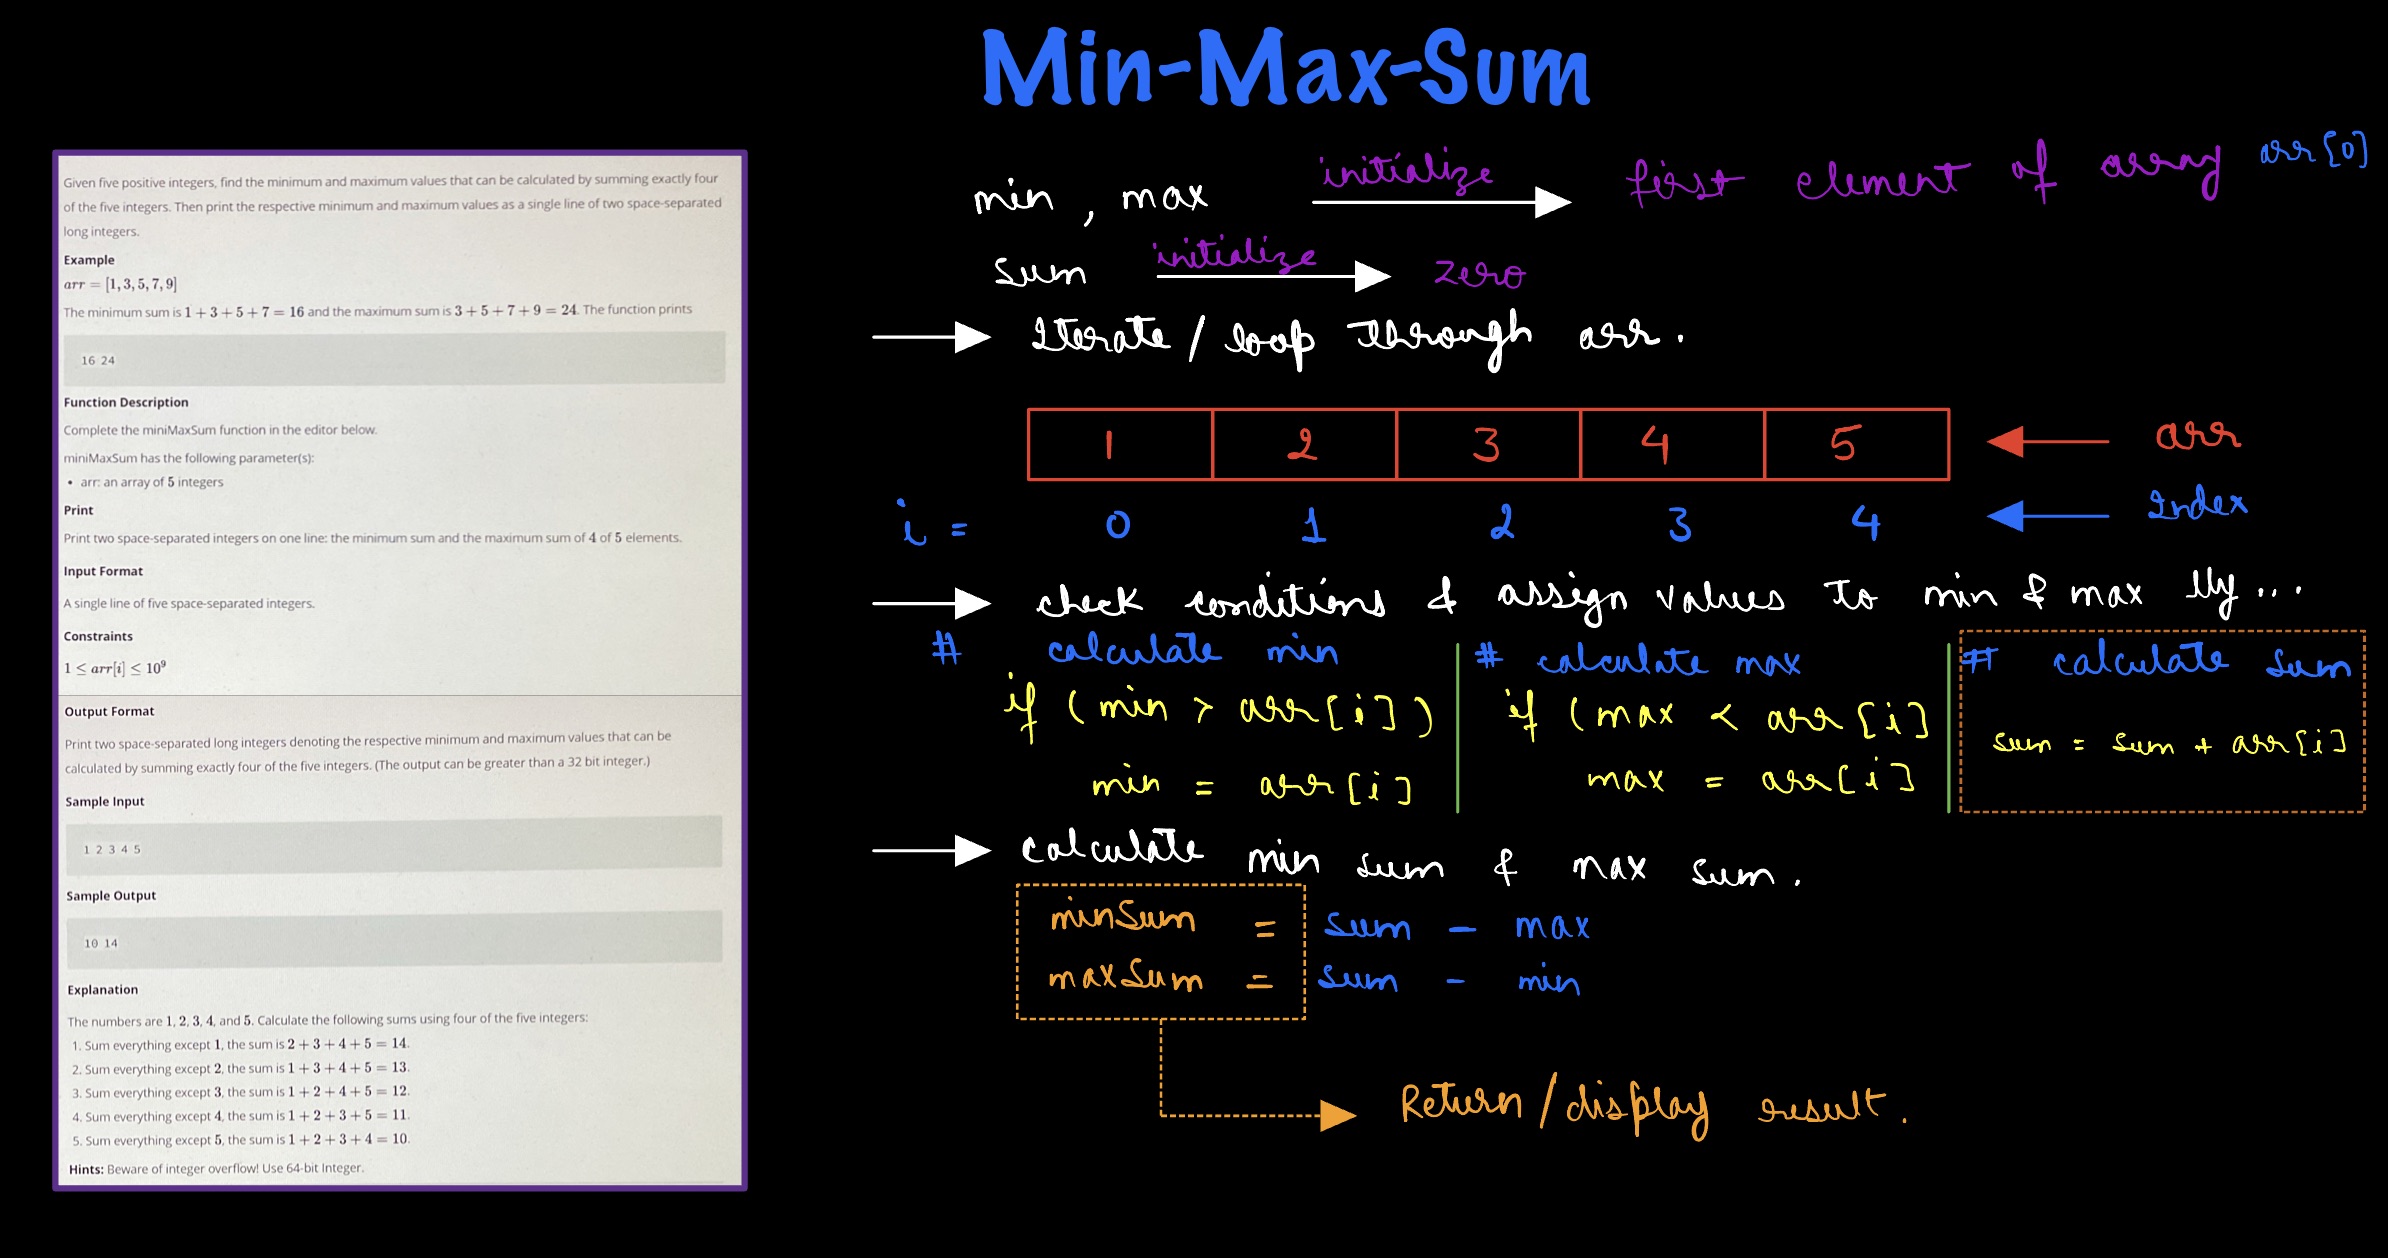 Min-Max-Sum
Given five positive integers, find the minimum and maximum values that can be calculated by summing exactly four
of the five integers. Then print the respective minimum and maximum values as a single line of two space-separated
long integers.
Example
arr = [1, 3, 5, 7, 9]
The minimum sum is 1 + 3 + 5 + 7 = 16 and the maximum sum is 3 + 5 + 7 + 9 = 24. The function prints
16 24
Function Description
Complete the miniMaxSum function in the editor below.
miniMaxSum has the following parameter(s):
• arr: an array of 5 integers
Print
Print two space-separated integers on one line: the minimum sum and the maximum sum of 4 of 5 elements.
Input Format
A single line of five space-separated integers.
Constraints
1 ≤ arr[i] ≤ 10⁹
Output Format
Print two space-separated long integers denoting the respective minimum and maximum values that can be
calculated by summing exactly four of the five integers. (The output can be greater than a 32 bit integer.)
Sample Input
1 2 3 4 5
Sample Output
10 14
Explanation
The numbers are 1, 2, 3, 4, and 5. Calculate the following sums using four of the five integers:
1. Sum everything except 1, the sum is 2 + 3 + 4 + 5 = 14.
2. Sum everything except 2, the sum is 1 + 3 + 4 + 5 = 13.
3. Sum everything except 3, the sum is 1 + 2 + 4 + 5 = 12.
4. Sum everything except 4, the sum is 1 + 2 + 3 + 5 = 11.
5. Sum everything except 5, the sum is 1 + 2 + 3 + 4 = 10.
Hints: Beware of integer overflow! Use 64-bit Integer.
min , max initialize first element of array arr[0]
sum initialize zero
Iterate / loop through arr.
1 2 3 4 5 arr
i = 0 1 2 3 4 Index
check conditions & assign values to min & max lly...
# calculate min
if (min > arr[i])
min = arr[i]
# calculate max
if (max < arr[i]
max = arr[i]
# calculate sum
sum = sum + arr[i]
calculate min sum & max sum.
minSum = sum - max
maxSum = sum - min
Return/display result.